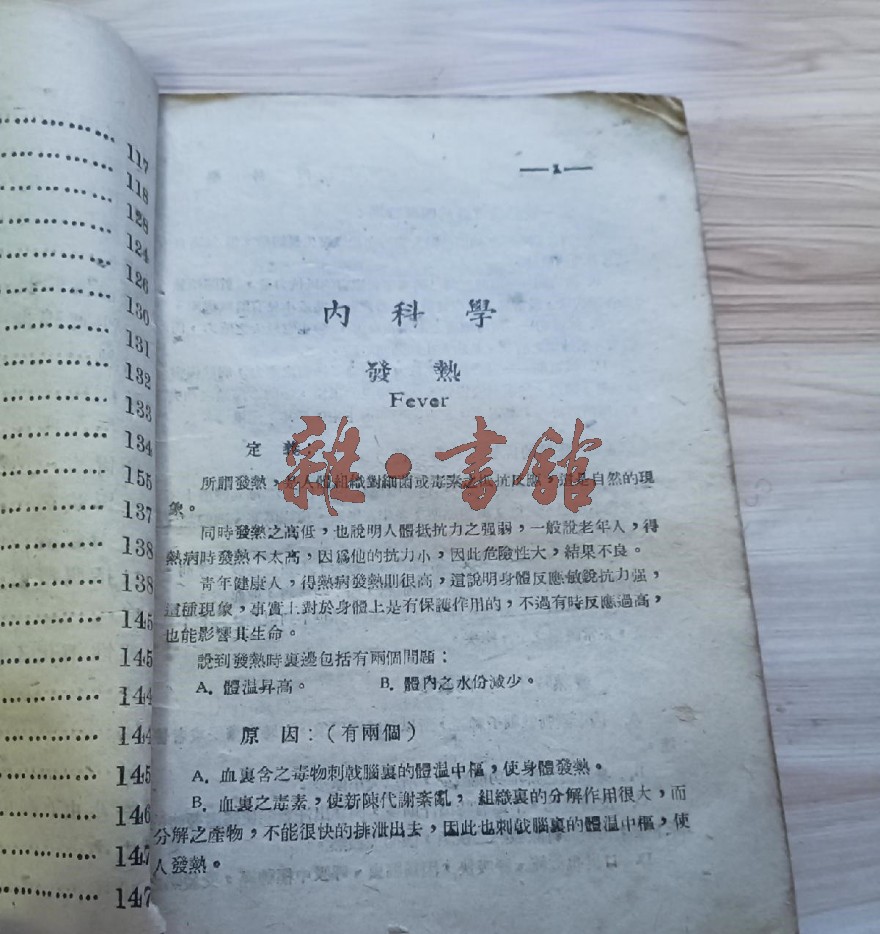 117
118
128
124
126
130
131
132
133
134
155
137
138
138
145
145
144
144
145
146
147
147
—1—
內科學
發熱
Fever
定義:
所謂發熱,是人體組織對細菌或毒素之抵抗反應,這是自然的現
象。
同時發熱之高低,也說明人體抵抗力之强弱,一般說老年人,得
熱病時發熱不太高,因爲他的抗力小,因此危險性大,結果不良。
青年健康人,得熱病發熱則很高,這說明身體反應敏銳抗力强,
這種現象,事實上對於身體上是有保護作用的,不過有時反應過高,
也能影響其生命。
說到發熱時裏邊包括有兩個問題:
A. 體溫昇高。 B. 體內之水份減少。
原因:(有兩個)
A. 血裏含之毒物刺戟腦裏的體溫中樞,使身體發熱。
B. 血裏之毒素,使新陳代謝紊亂, 組織裏的分解作用很大,而
分解之產物,不能很快的排泄出去,因此也刺戟腦裏的體溫中樞,使
人發熱。
雜·書館